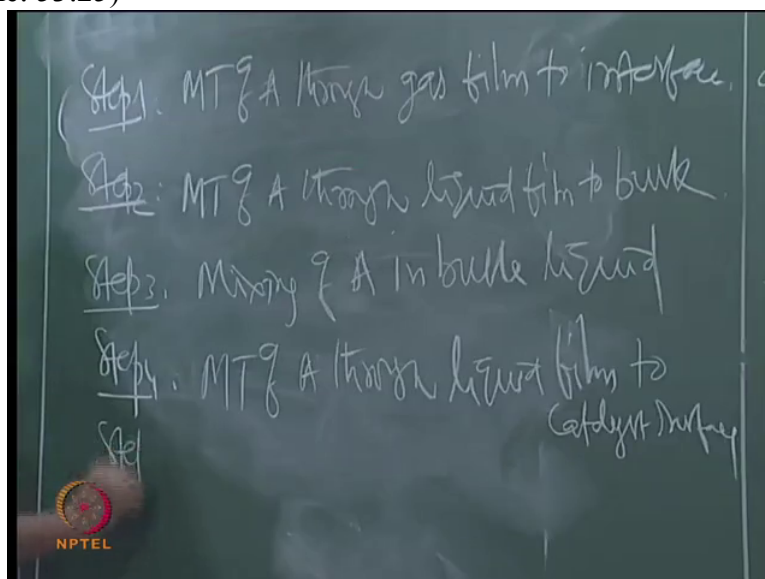 Step1. MT of A through gas film to interface.
Step2: MT of A through liquid film to bulk.
Step3. Mixing of A in bulk liquid
Step4. MT of A through liquid film to
Catalyst surface
Ste
NPTEL